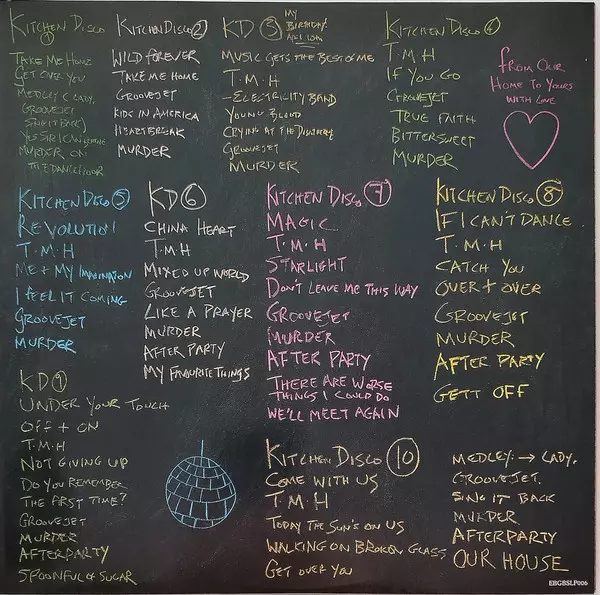 KITCHEN DISCO
1
TAKE ME HOME
GET OVER YOU
MEDLEY (LADY,
GROOVEJET
SING IT BACK)
YES SIR I CAN BOOGIE
MURDER ON
THE DANCEFLOOR
KITCHEN DISCO 2
WILD FOREVER
TAKE ME HOME
GROOVEJET
KIDS IN AMERICA
HEARTBREAK
MURDER
KD 3
MY
BIRTHDAY
MUSIC GETS THE BEST OF ME
T.M.H
-ELECTRICITY BAND
YOUNG BLOOD
CRYING AT THE DISCOTEQUE
GROOVEJET
MURDER
KITCHEN DISCO 4
T M H
IF YOU GO
GROOVEJET
TRUE FAITH
BITTERSWEET
MURDER
FROM OUR
HOME TO YOURS
WITH LOVE
KITCHEN DISCO 5
REVOLUTION
T.M.H
ME + MY IMAGINATION
I FEEL IT COMING
GROOVEJET
MURDER
KD 6
CHINA HEART
T.M.H
MIXED UP WORLD
GROOVEJET
LIKE A PRAYER
MURDER
AFTER PARTY
MY FAVOURITE THINGS
KITCHEN DISCO 7
MAGIC
T.M.H
STARLIGHT
DON'T LEAVE ME THIS WAY
GROOVEJET
MURDER
AFTER PARTY
THERE ARE WORSE
THINGS I COULD DO
WE'LL MEET AGAIN
KITCHEN DISCO 8
IF I CAN'T DANCE
T.M.H
CATCH YOU
OVER + OVER
GROOVEJET
MURDER
AFTER PARTY
GETT OFF
KD 9
UNDER YOUR TOUCH
OFF + ON
T.M.H
NOT GIVING UP
DO YOU REMEMBER
THE FIRST TIME?
GROOVEJET
MURDER
AFTERPARTY
SPOONFUL of SUGAR
KITCHEN DISCO 10
COME WITH US
T.M.H
TODAY THE SUN'S ON US
WALKING ON BROKEN GLASS
GET OVER YOU
MEDLEY: → LADY,
GROOVEJET.
SING IT BACK
MURDER
AFTERPARTY
OUR HOUSE
EBGBSLP006